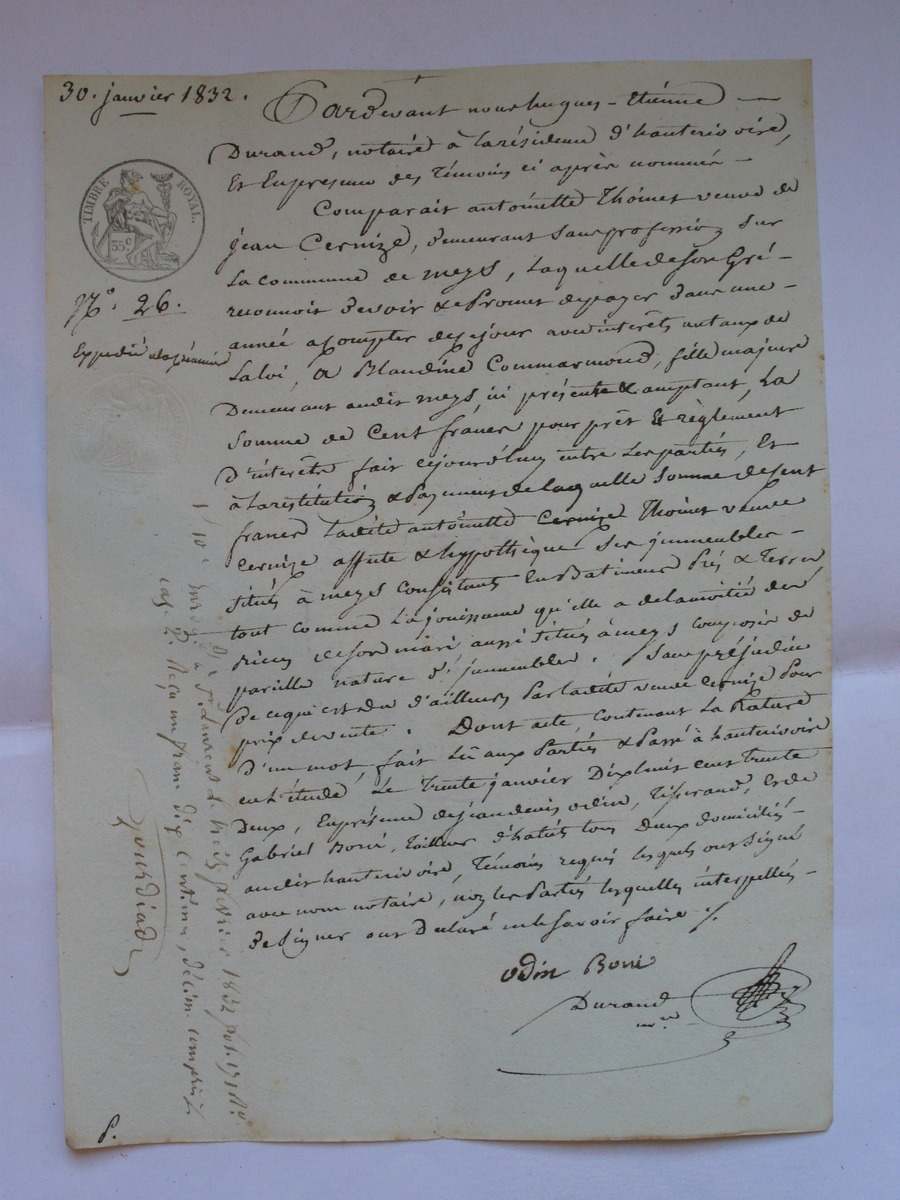 30. janvier 1832.
Pardevant nous hugues - Etienne
Durand, notaire à la résidence d'hauterivoire,
Et En présence des Témoins ci après nommés -
Comparait antoinette Thômet veuve de
jean Cernize, demeurant sans profession sur
La commune de meys, Laquelle de son Gré -
reconnoit devoir & Promet de payer dans une -
année a compter de ce jour avec interêts au taux de
La loi, à Blandine Commarmond, fille majeure
Demeurant audit meys, ici présente & acceptant, La
Somme de Cent francs pour prêt & règlement
d'interêts fait cejourd'hui entre Les parties, Et
à La restitution & Payement de laquelle Somme de Cent
francs Ladite antoinette Cernize Thômet veuve
Cernize affecte & hypothèque Ses jmmeubles -
Situés à meys Consistants En Batiments Prés & Terres
tout comme La jouissance qu'elle a de la moitié des
biens de son mari aussi situés à meys composés de
pareille nature d'jmmeubles. Sans préjudice
de ce qui est du d'ailleurs Par ladite veuve Cernize Pour
prix de vente. Dont acte, contenant La Rature
d'un mot fait Lû aux Parties & Passé à hauterivoire
en L'étude Le Trente janvier Dix huit cent trente
Deux, En présence de jean denis odin, Tisserand, Et de
Gabriel Boni, Tailleur d'habits tous Deux domiciliés -
audit hauterivoire, Témoins requis lesquels ont Signé
avec nous notaire, non les Parties lesquelles interpellés -
de Signer ont Déclaré ne le Savoir faire /.
odin Boni
Durand
nre
TIMBRE ROYAL.
35c.
No. 26.
Expédié
1/10e Enregé à St. Laurent Le trois février 1832 fol. 171 Ro.
cas. 2. Reçu un franc dix centimes, décime compris
P.